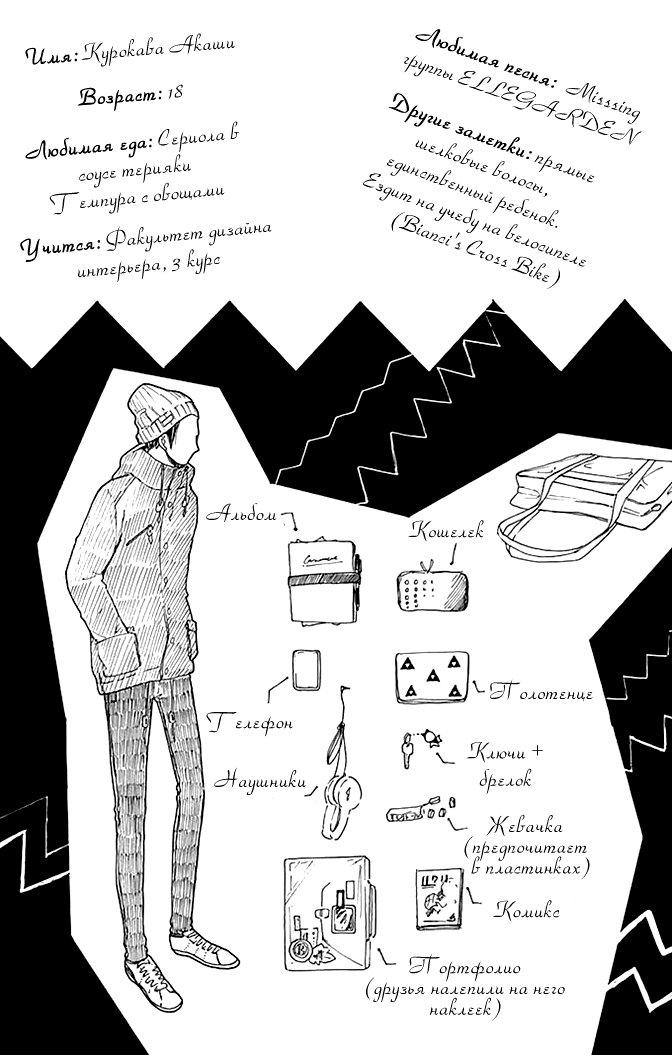 Имя: Курокава Акаши
Возраст: 18
Любимая еда: Сериола в
соусе терияки
Темпура с овощами
Учится: Факультет дизайна
интерьера, 3 курс
Любимая песня: Misssing
группы ELLEGARDEN
Другие заметки: прямые
шелковые волосы,
единственный ребенок.
Ездит на учебу на велосипеле
(Bianci's Cross Bike)
Альбом
Кошелек
Телефон
Полотенце
Наушники
Ключи +
брелок
Жевачка
(предпочитает
в пластинках)
Комикс
Портфолио
(друзья налепили на него
наклеек)